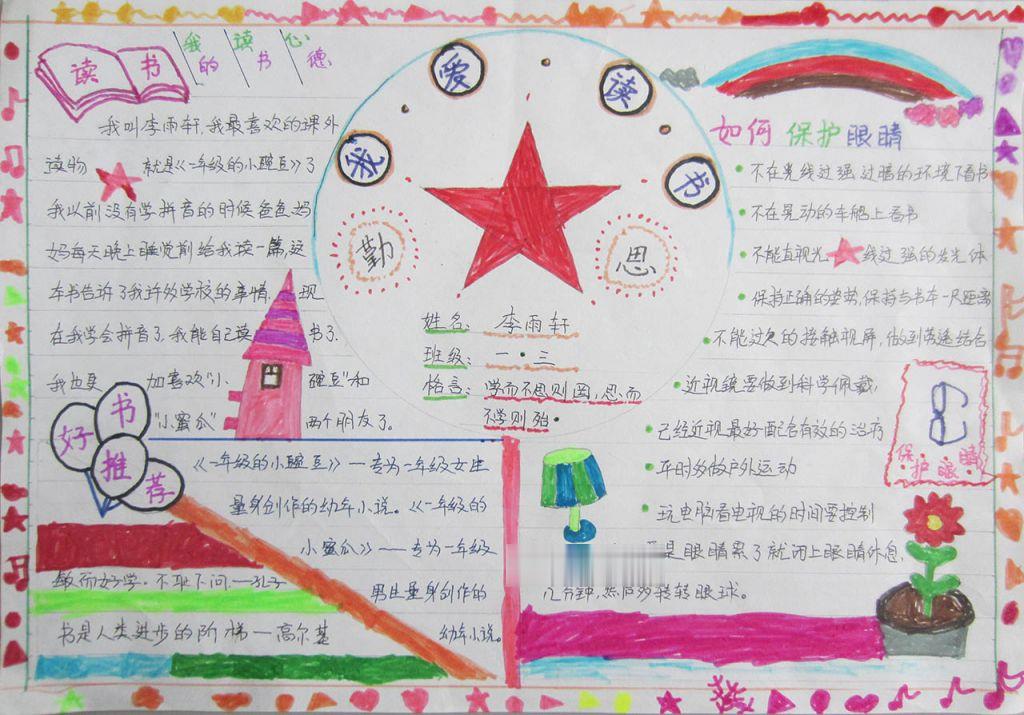 读书
我的读书心德
我叫李雨轩.我最喜欢的课外
读物 就是《一年级的小豌豆》了
我以前没有学拼音的时候爸爸.妈
妈每天晚上睡觉前给我读一篇,这
本书告诉了我许多学校的事情. 现
在我学会拼音了.我能自己读 书了.
我也更 加喜欢"小 豌豆"和
"小蜜瓜" 两个朋友了.
我爱读书
勤思
姓名: 李雨轩
班级: 一·三
格言: 学而不思则罔,思而
不学则殆.
好书推荐
《一年级的小豌豆》一专为一年级女生
量身创作的幼年小说。《一年级的
小蜜瓜》——专为一年级
男生量身创作的
幼年小说。
敏而好学。不耻下问.—孔子
书是人类进步的阶梯—高尔基
如何保护眼睛
不在光线过强.过暗的环境下看书
不在晃动的车船上看书
不能直视光 线过强的发光体
保持正确的姿势,保持与书本一尺距离
不能过久的接触视屏,做到劳逸结合
近视镜要做到科学佩戴,
已经近视最好配合有效的治疗
平时多做户外运动
玩电脑看电视的时间要控制
是眼睛累了就闭上眼睛休息,
几分钟,然后多转转眼球。
保护眼睛